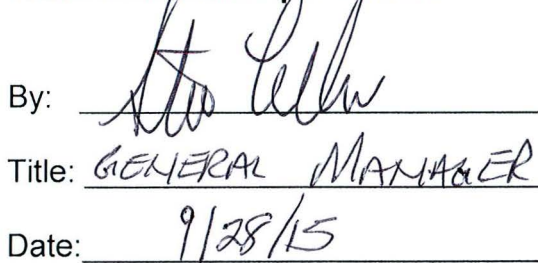 By:
Title: GENERAL MANAGER
Date: 9/28/15